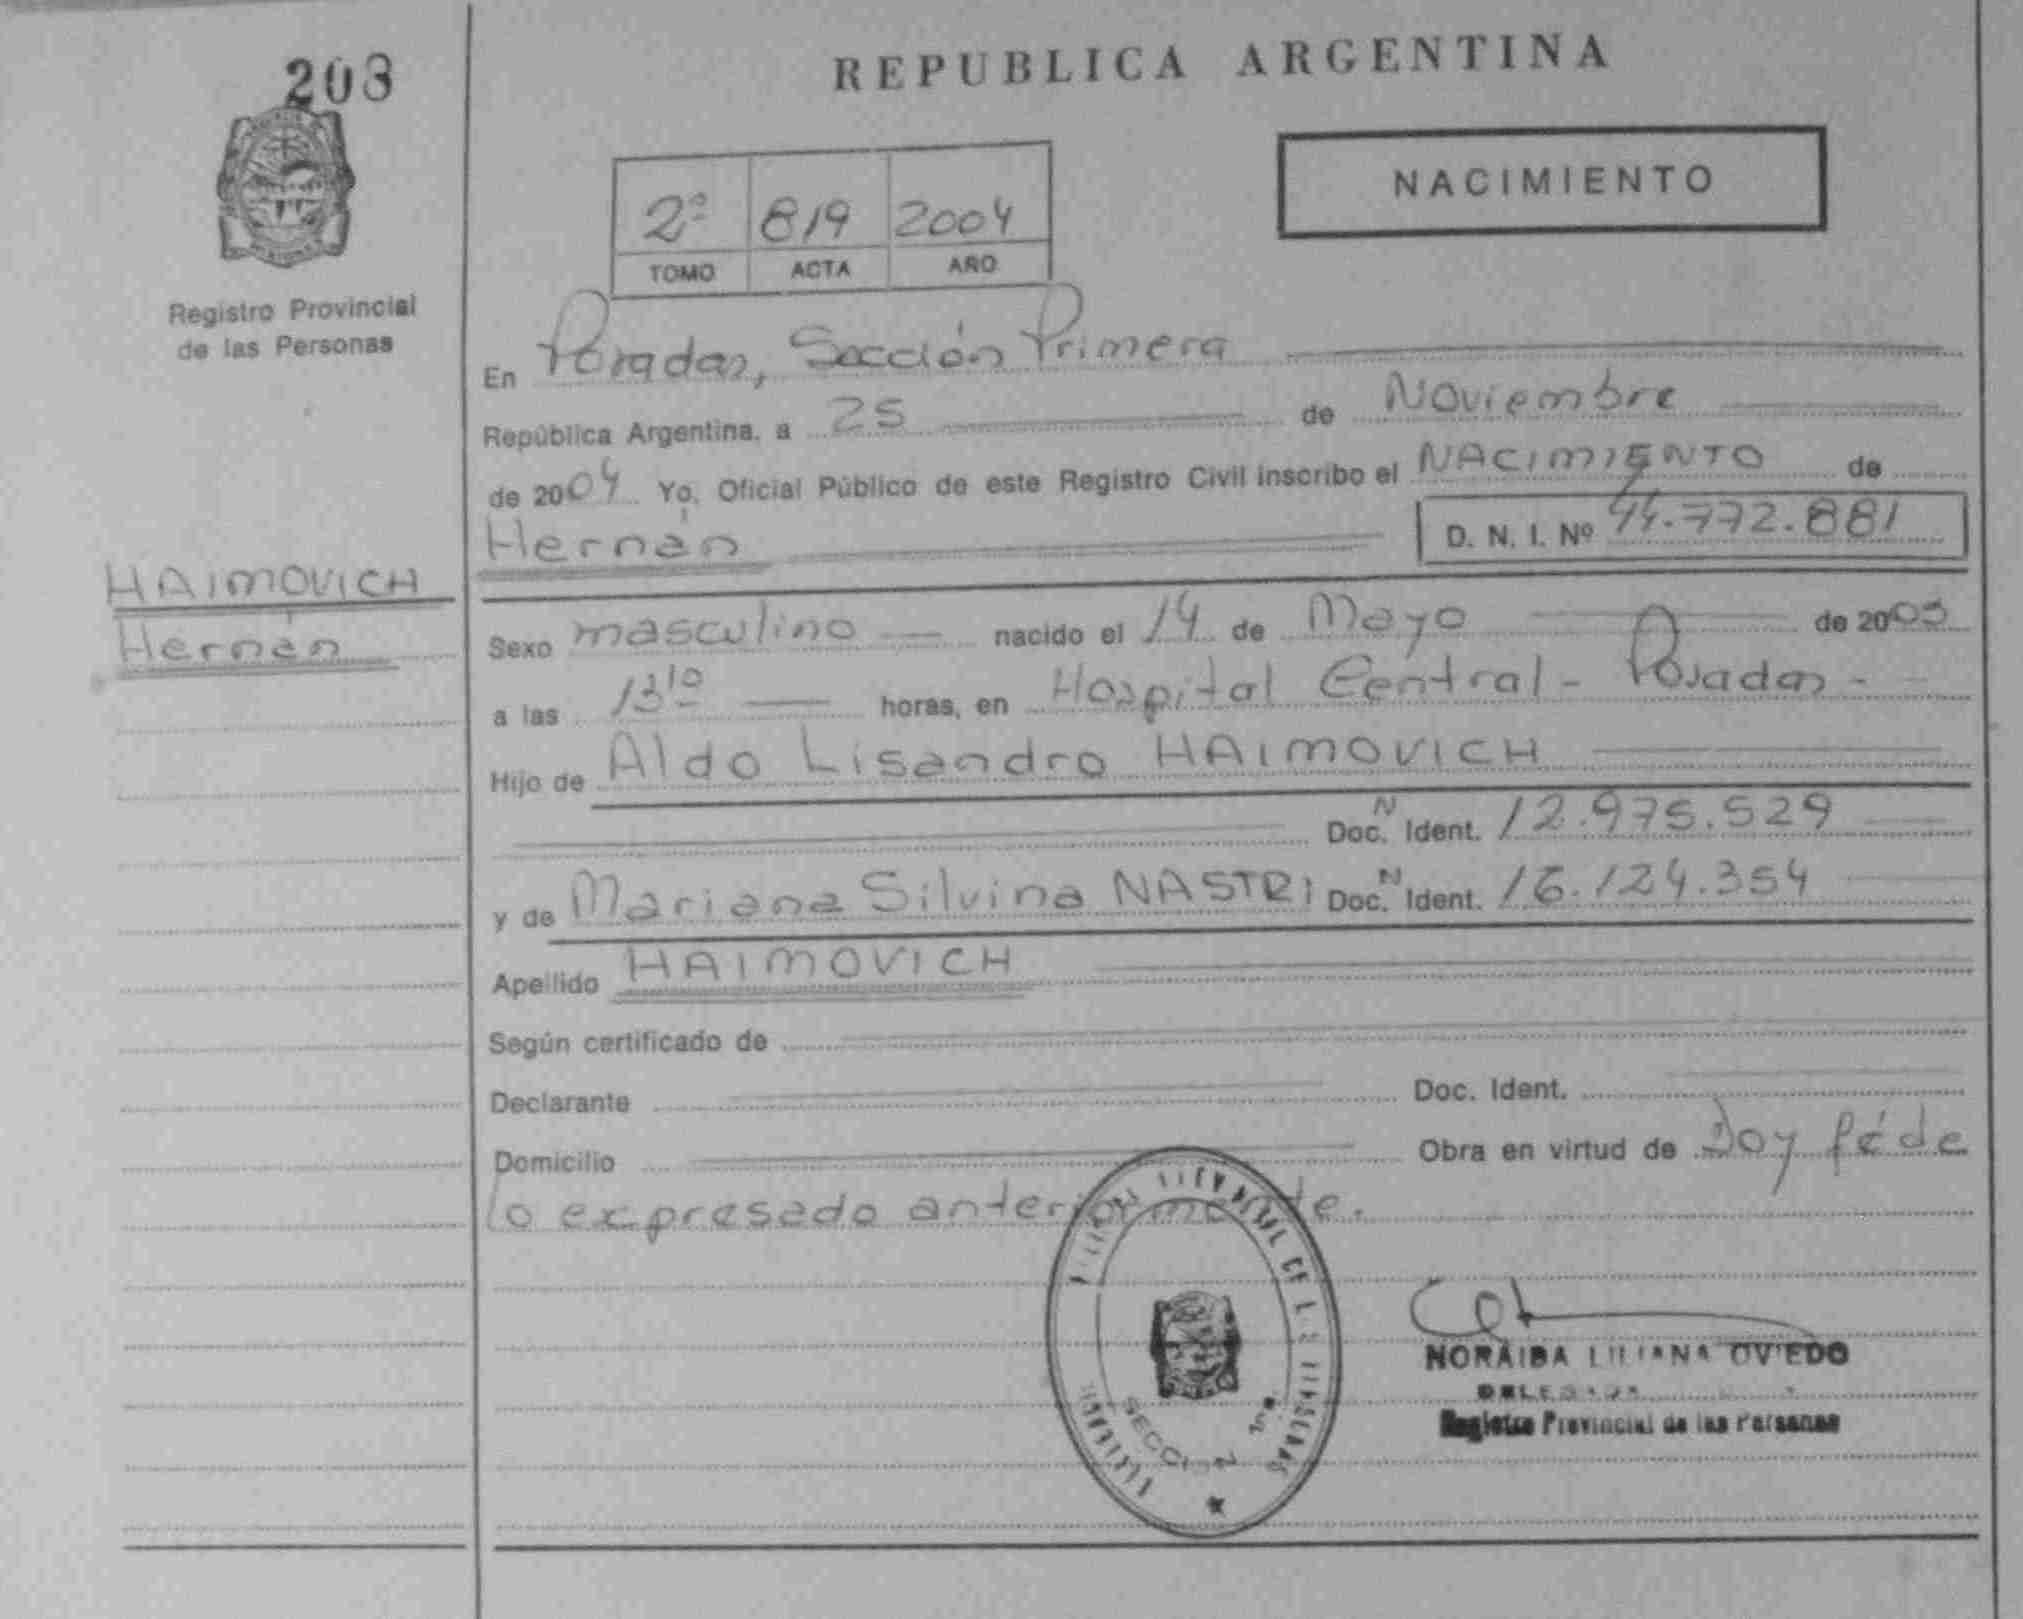 208
Registro Provincial
de las Personas
HAIMOVICH
Hernán
REPUBLICA ARGENTINA
NACIMIENTO
2º 819 2004
TOMO ACTA AÑO
En Posadas, Sección Primera
República Argentina, a 25 de Noviembre
de 2004 Yo, Oficial Público de este Registro Civil inscribo el NACIMIENTO de
Hernán D. N. I. Nº 44.772.881
Sexo masculino nacido el 14 de Mayo de 2003
a las 13¹⁰ horas, en Hospital Central - Posadas -
Hijo de Aldo Lisandro HAIMOVICH
Doc. N Ident. 12.975.529
y de Mariana Silvina NASTRI Doc. N Ident. 16.124.354
Apellido HAIMOVICH
Según certificado de
Declarante Doc. Ident.
Domicilio Obra en virtud de Doy fé de
lo expresado anteriormente.
SECCION 1ª
NORAIBA LILIANA OVIEDO
Registro Provincial de las Personas